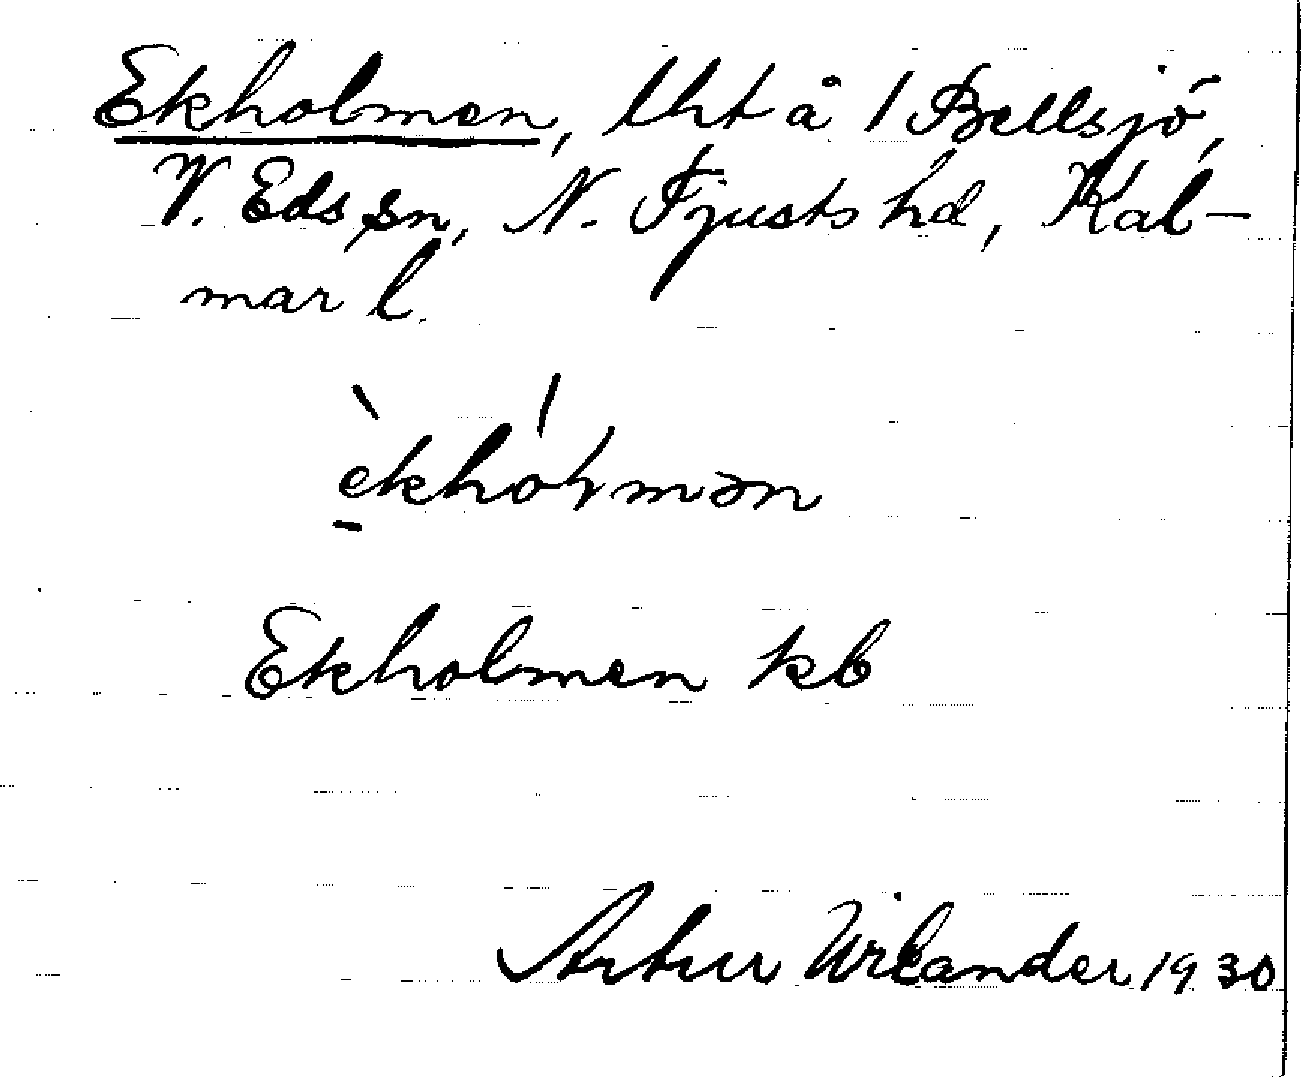 Ekholmen, lht å 1 Bellsjö,
V. Eds sn, N. Tjusts hd, Kal-
mar l.
èkhóɫmən
Ekholmen kb
Artur Wilander 1930